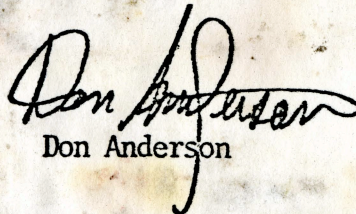 Don Anderson
Don Anderson